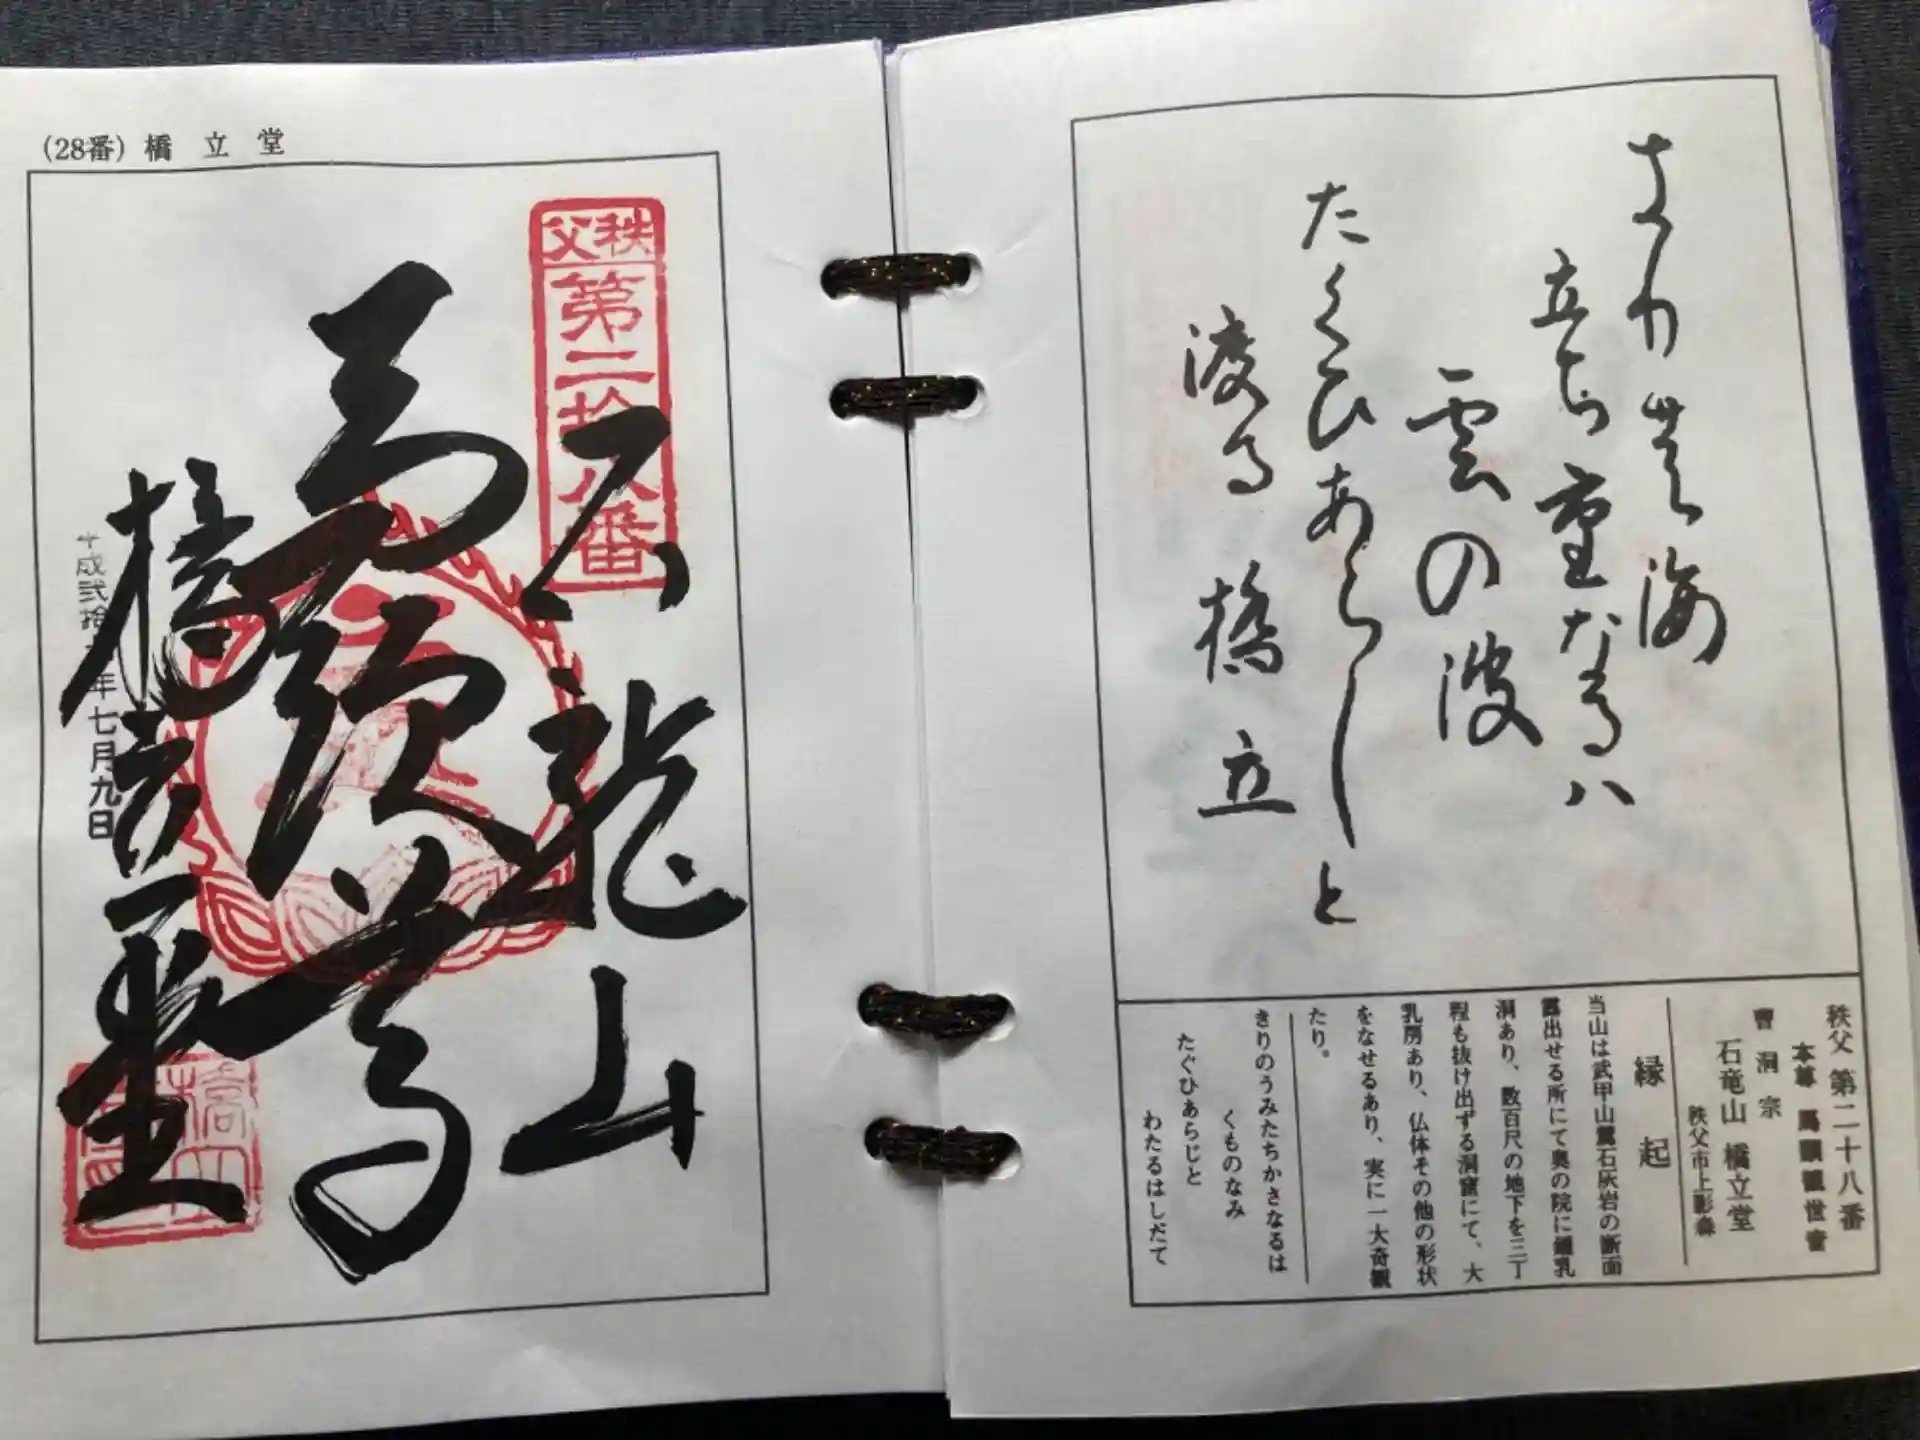 (28番) 橋立堂
秩父
第二拾八番
石龍山
馬頭尊
橋立堂
年七月九日
立ち重なるハ
雲の波
たくひあらしと
渡る橋立
秩父第二十八番
本尊 馬頭観世音
曹洞宗
石竜山 橋立堂
秩父市上影森
縁起
当山は武甲山麓石灰岩の断面
露出せる所にて奥の院に鍾乳
洞あり、数百尺の地下を三丁
程も抜け出ずる洞窟にて、大
乳房あり、仏体その他の形状
をなせるあり、実に一大奇観
たり。
きりのうみたちかさなるは
くものなみ
たぐひあらじと
わたるはしだて